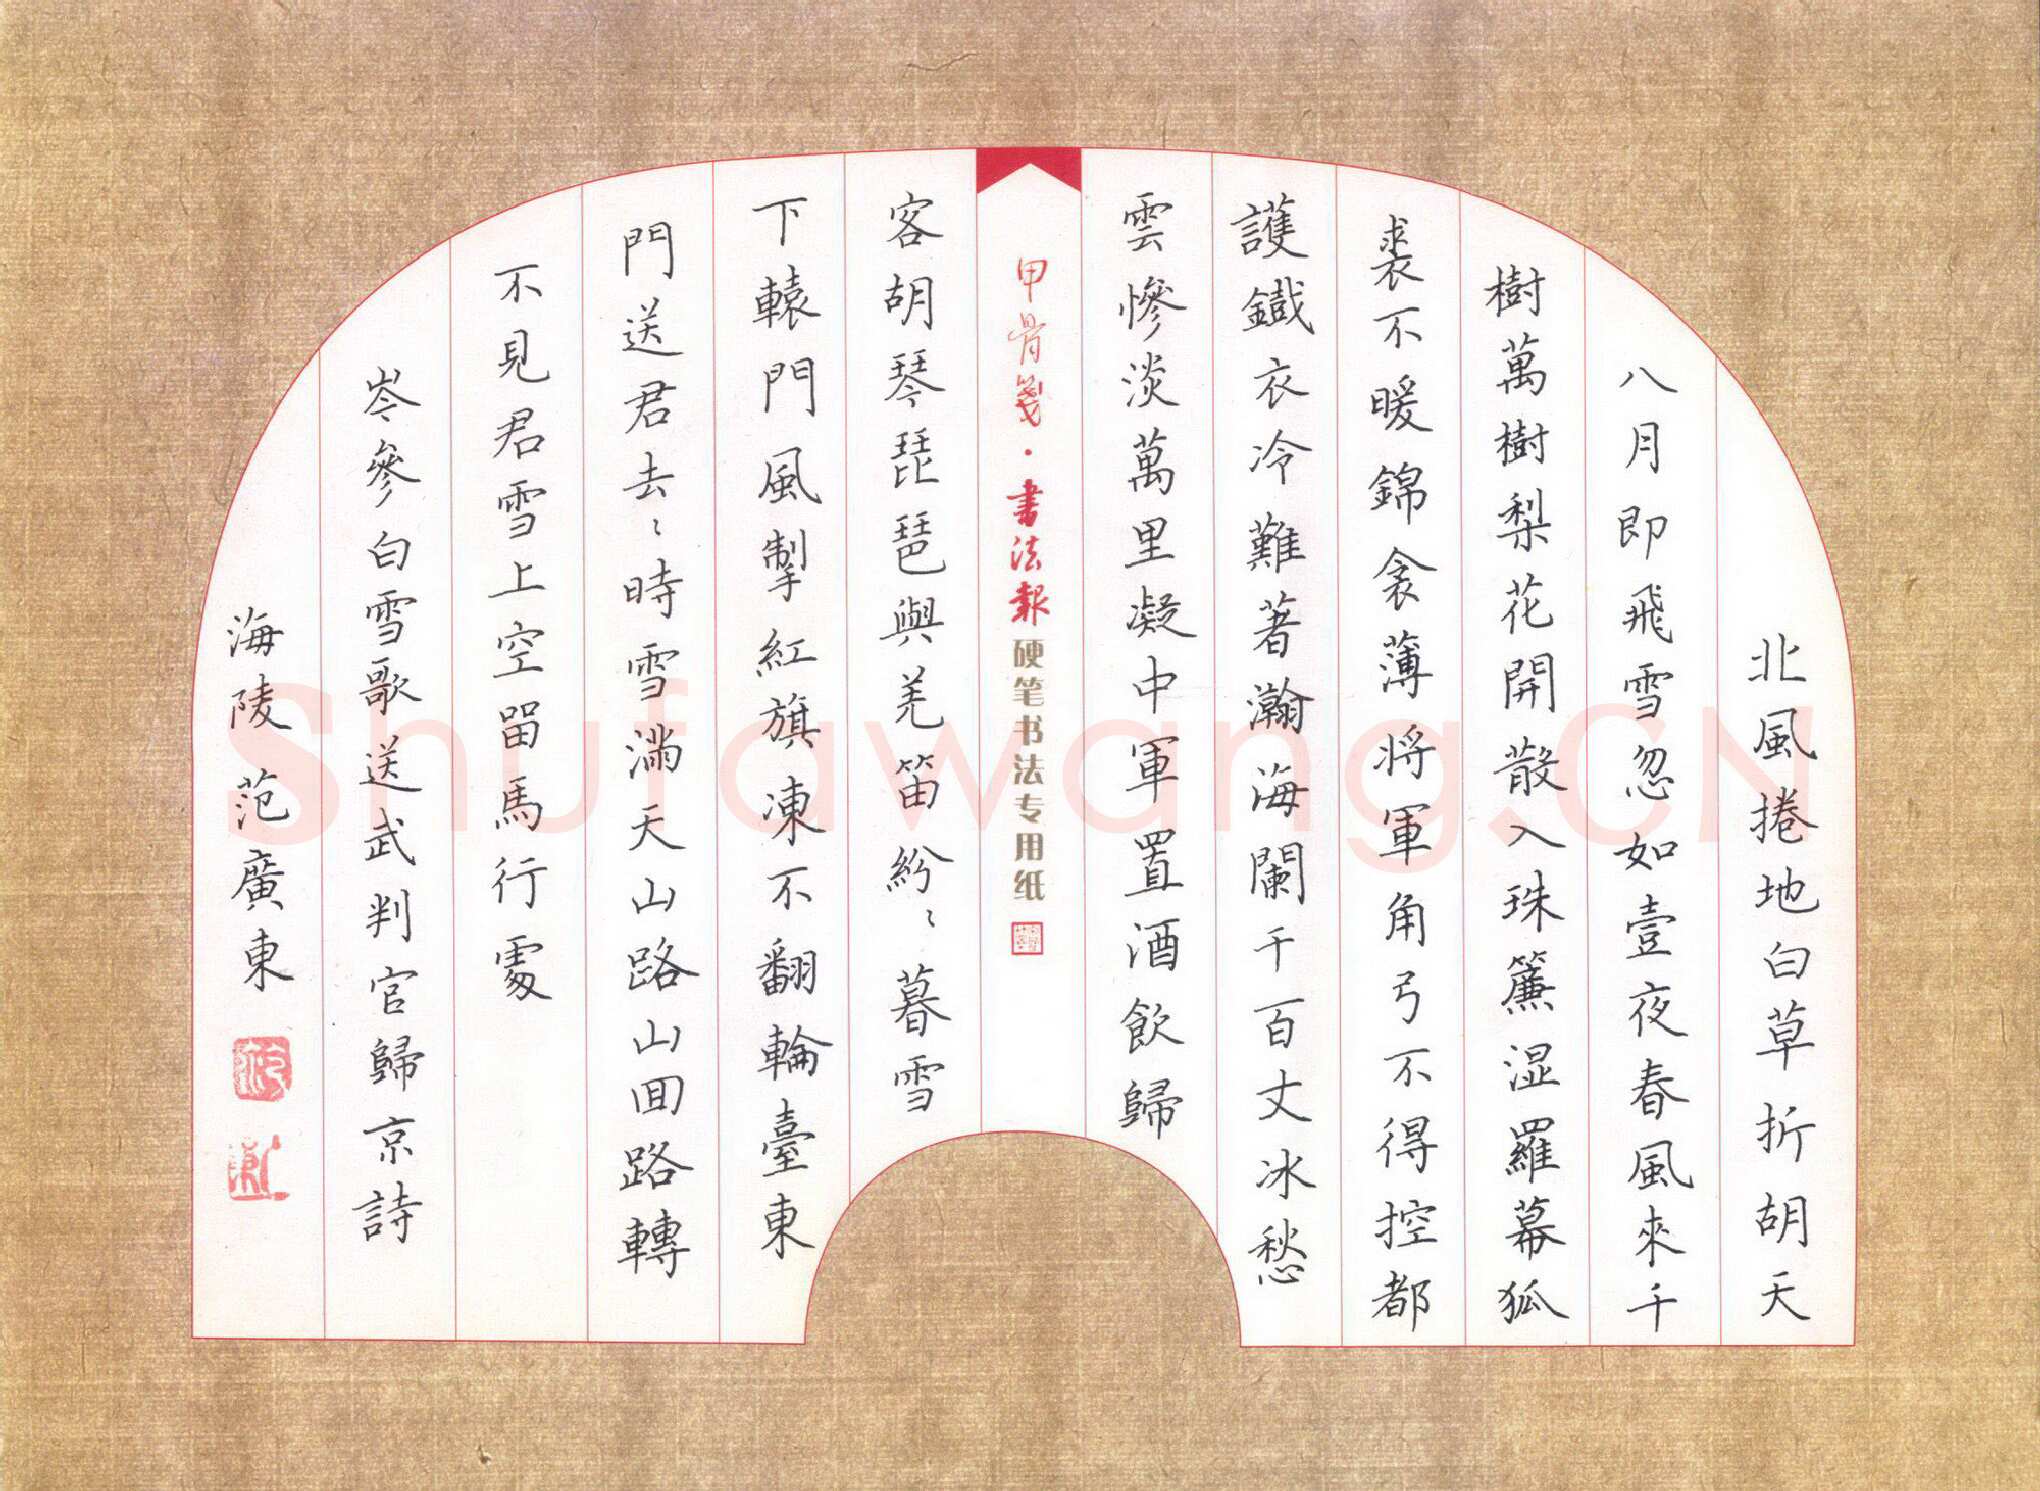 北風捲地白草折胡天
八月即飛雪忽如壹夜春風來千
樹萬樹梨花開散入珠簾湿羅幕狐
裘不暖錦衾薄將軍角弓不得控都
護鐵衣冷難著瀚海闌千百丈冰愁
雲慘淡萬里凝中軍置酒飲歸
甲骨箋·書法報硬笔书法专用纸
客胡琴琵琶與羌笛紛〻暮雪
下轅門風掣紅旗凍不翻輪臺東
門送君去〻時雪滿天山路山回路轉
不見君雪上空留馬行處
岑參白雪歌送武判官歸京詩
海陵范廣東
Shufawang.CN